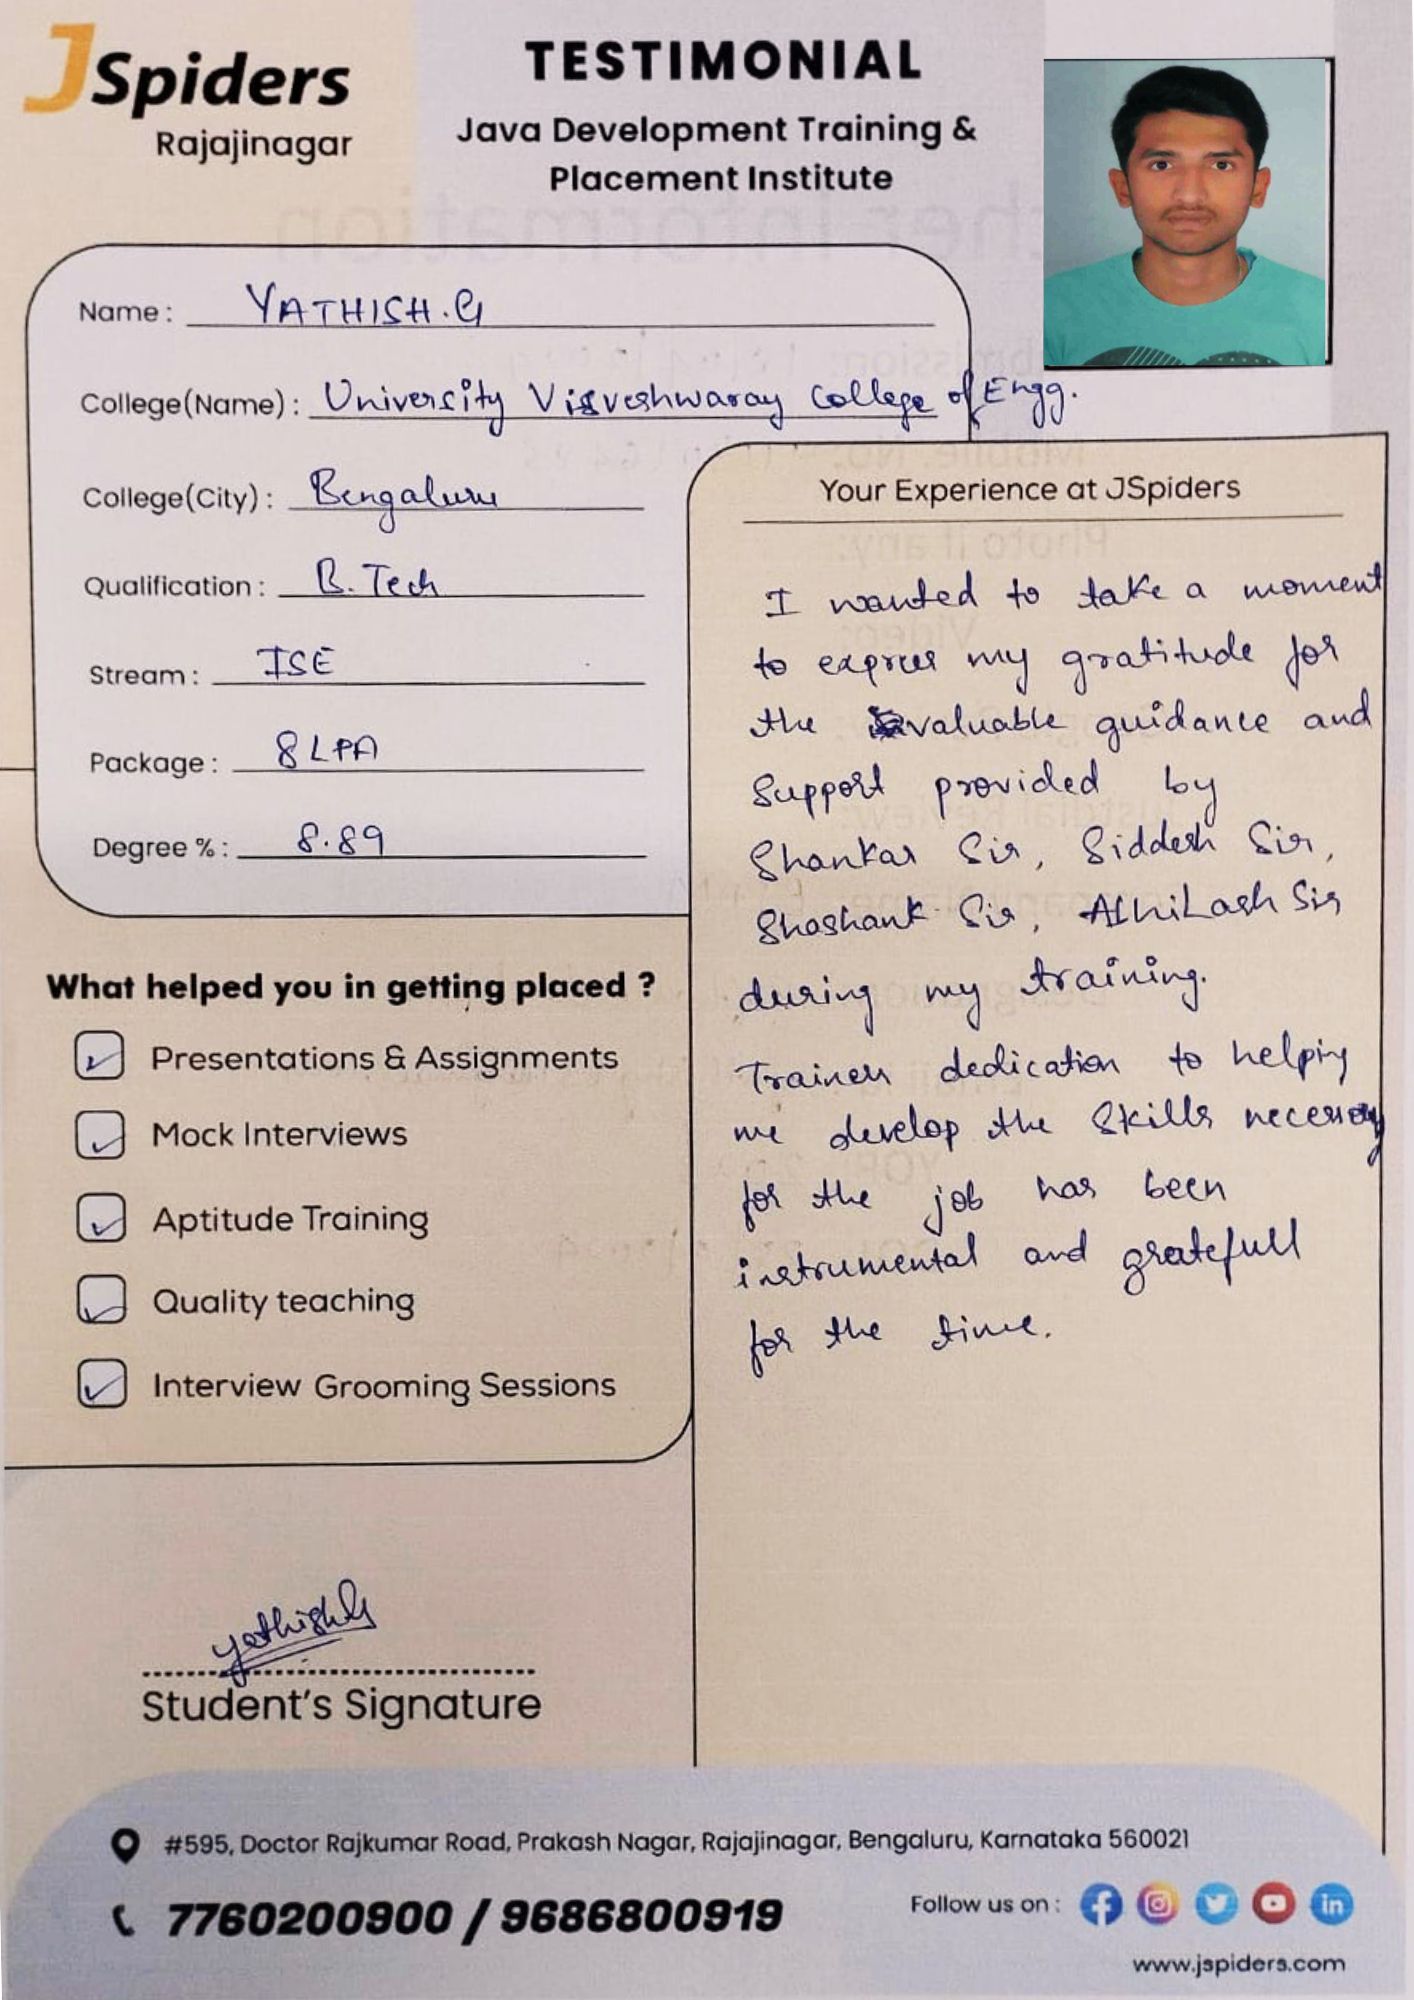 JSpiders
Rajajinagar
TESTIMONIAL
Java Development Training &
Placement Institute
Name : YATHISH.G
College(Name) : University Visveshwaray College of Engg.
College(City) : Bengaluru
Qualification : B.Tech
Stream : ISE
Package : 8 LPA
Degree % : 8.89
What helped you in getting placed ?
Presentations & Assignments
Mock Interviews
Aptitude Training
Quality teaching
Interview Grooming Sessions
Your Experience at JSpiders
I wanted to take a moment
to express my gratitude for
the valuable guidance and
Support provided by
Shankar Sir, Siddesh Sir,
Shashank Sir, Abhilash Sir
during my training.
Trainers dedication to helping
me develop the Skills necessary
for the job has been
instrumental and gratefull
for the time.
yathishG
Student's Signature
#595, Doctor Rajkumar Road, Prakash Nagar, Rajajinagar, Bengaluru, Karnataka 560021
7760200900 / 9686800919
Follow us on :
www.jspiders.com